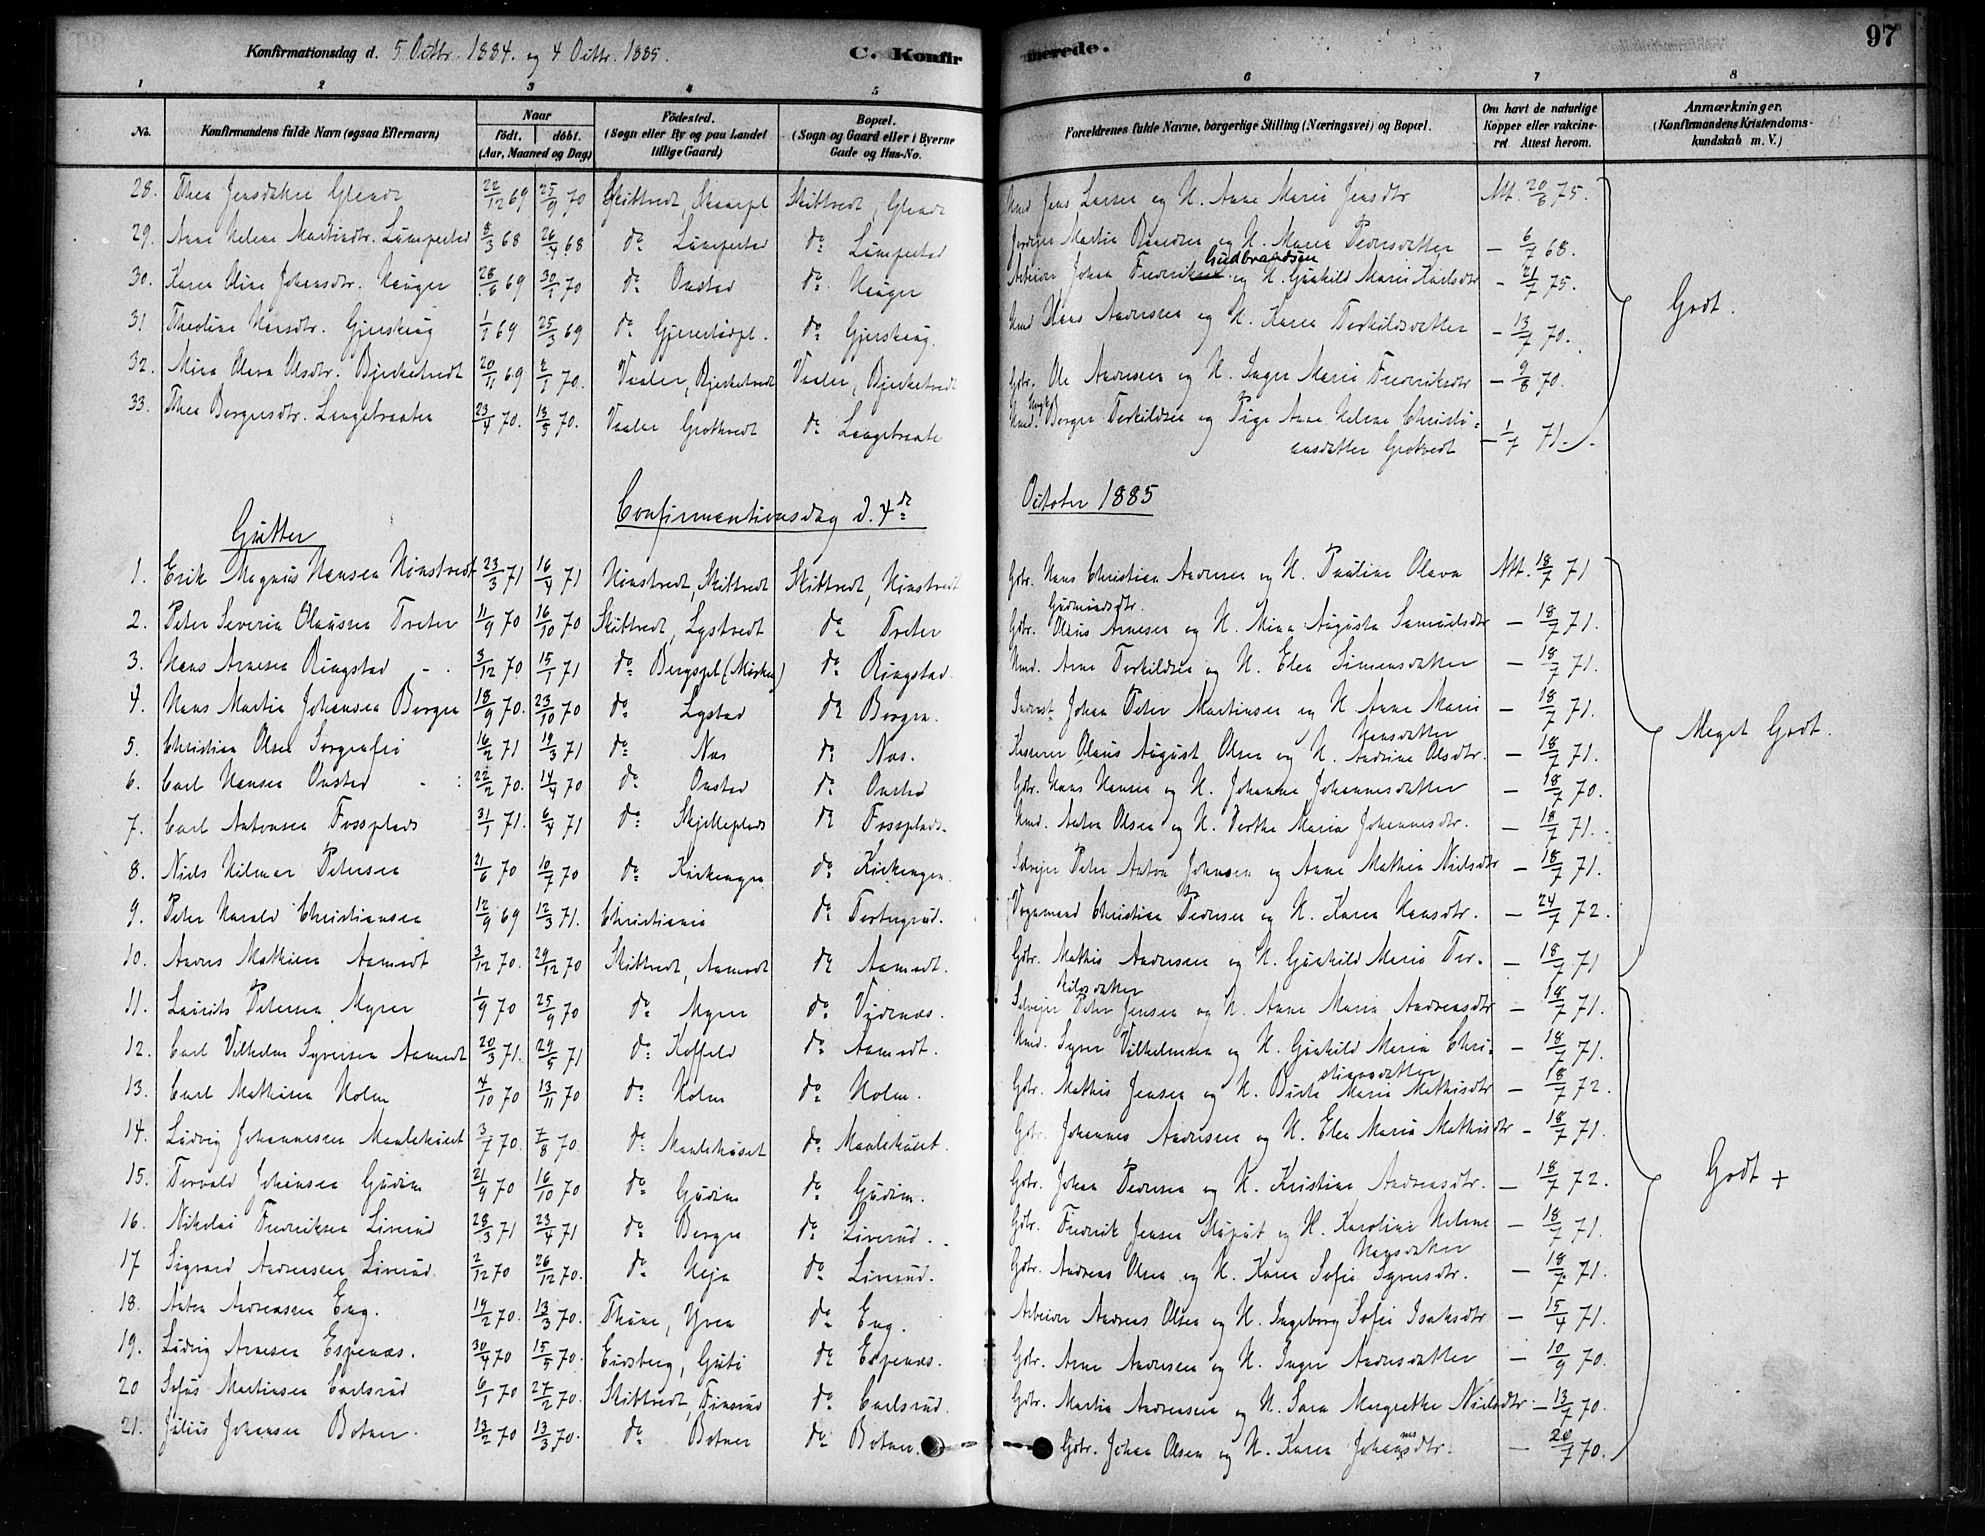 Konfirmationsdag d. 5 Octbr. 1884. og 4 Octbr. 1885.
C. Konfirmerede.
97
1 2 3 4 5 6 7 8
No.
Konfirmandens fulde Navn (ogsaa Efternavn)
Naar
født. døbt.
(Aar, Maaned og Dag)
Fødested.
(Sogn eller By og paa Landet
tillige Gaard)
Bopæl.
(Sogn og Gaard eller i Byerne
Gade og Hus-No.
Forældrenes fulde Navne, borgerlige Stilling (Næringsvei) og Bopæl.
Om havt de naturlige
Kopper eller vakcine-
ret Attest herom.
Anmærkninger.
(Konfirmandens Kristendoms-
kundskab m. V.)
28. Thea Jensdatter 22/12 69 25/9 70 Skibtvedt Jens Larsen og H. Anne Marie Jensdtr Att. 20/6 75.
29. Anne Helene Martinsdtr. 8/3 68 26/4 68 do Martin og H. Maren Pedersdatter – 6/7 68.
30. Karen Oline Johansdtr. Hauger 28/6 69 30/1 70 do Onstad do Hauger Arbeider Johan Gudbrandsen og H. Gunhild Marie – 21/7 75.
31 Theoline Hansdtr. 1/1 69 25/3 69 do Hans Andersen og H. Karen Torkildsdatter – 13/7 70.
Godt.
32. Mina Olava Olsdtr. Bjerketvedt 20/11 69 2/1 70. Vaaler, Bjerketvedt Vaaler, Bjerketvedt Gbr. Ole Andersen og H. Inger Marie Fredriksdtr – 9/8 70.
33. Thea Borgersdtr. Langebraaten 23/4 70. 13/5 70. Vaaler Grottvedt do Langebraate Borger Torkildsen og Pige Anne Helene Christi-
ansdatter Grotvedt – 1/7 71.
Confirmationsdag d. 4de October 1885
Gutter
1. Erik Magnus Hansen 23/3 71 16/4 71 Skibtvedt Skibtvedt, Gbr. Hans Christian Andersen og H. Pauline Olava Att. 18/7 71
Gudmundsdtr.
2. Peter Severin Olaussen Treter 11/9 70 16/10 70 Skibtvedt, Lystvedt do Treter Gbr. Olaus Arnesen og H. Mina Augusta Samuelsdtr – 18/7 71.
3. Hans Arnesen Ringstad 3/12 70 15/1 71 do Bergspl do Ringstad. Hmd. Arne Torkildsen og H. Elen Simensdatter – 18/7 71.
4. Hans Martin Johansen Bergen 18/9 70. 23/10 70 do Lystad do Bergen. Inderst Johan Peter Martinsen og H. Anne Marie – 18/7 71.
Hansdatter
5. Christian Olsen 16/2 71 19/3 71 do Nas do Nas. Olaus August Olsen og H. Andrine Olsdtr. – 18/7 71.
Meget Godt.
6. Carl Hansen Onstad 22/2 70. 14/4 70 do Onstad do Onstad Gbr. Hans Hansen og H. Johanne Johannesdatter – 18/7 70.
7. Carl Antonsen Fossplads 31/1 71. 6/4 71 do Skjelleplads do Fossplads. Hmd. Anton Olsen og H. Berthe Maria Johannesdtr. – 18/7 71.
8. Niels Hilmar Petersen 21/6 70 10/7 70 do Kirkengen do Kirkengen. Selveier Peter Anton Johnsen og Anne Mathea Nielsdtr – 18/7 71.
9. Peter Harald Christiansen 12/9 69 12/3 71. Christiania do Vognmand Christian Pedersen og H. Karen Hansdtr. – 24/7 72.
10. Anders Mathisen Aamodt 3/12 70. 29/12 70 Skibtvedt, Aamodt do Aamodt. Gbr. Mathis Andersen og H. Gunhild Marie Tor-
kilsdatter – 18/7 71
11. Laurits Petersen Myrer 1/9 70 25/9 70 do Myrer do Videnæs. Selveier Peter Jensen og H. Anne Maria Andreasdtr – 18/7 71.
12. Carl Vilhelm Syversen Aamodt 20/3 71. 29/5 71 do Koffeld do Aamodt. Hmd. Syver Vilhelmsen og H. Gunhild Maria Chri-
stiansdatter – 18/7 71.
13. Carl Mathisen Holm 4/10 70 13/11 70 do Holm do Holm. Gbr. Mathis Jensen og H. Marie Mathisdtr – 18/7 72.
14. Ludvig Johannessen 3/7 70. 7/8 70. do do Gbr. Johannes Andersen og H. Elen Maria Mathisdtr – 18/7 71.
15. Torvald Johansen Gudim 21/9 70 16/10 70 do Gudim do Gudim. Gbr. Johan Pedersen og H. Kristine Andreasdtr. – 18/7 72.
Godt +
16. Nikolai Fredriksen Liverud 28/3 71 23/4 71 do Bergen do Liverud. Gbr. Fredrik Jensen og H. Karoline Helene – 18/7 71.
Hansdatter
17 Sigvard Andreasen Liverud 2/12 70 26/12 70. do do Liverud. Gbr. Andreas Olsen og H. Karen Sofie Syversdtr. – 18/7 71.
18. Anton Andreassen Eng. 19/2 70. 13/3 70. Thune, Yven do Eng. Arbeider Andreas Olsen og H. Ingeborg Sofie Isaksdtr – 15/4 71.
19. Ludvig Arnesen Espenæs. 30/4 70 15/5 70. Eidsberg, do Espenæs. Gbr. Arne Andersen og H. Inger Andersdatter – 10/9 70.
20 Sofus Martinsen Carlsrud 6/1 70 27/2 70. Skibtvedt, Finsrud do Carlsrud. Gbr. Martin Andreassen og H. Sara Margrethe Nielsdtr – 13/7 70.
21. Julius Johansen Botner. 13/2 70 13/3 70. do Botner do Botner. Gbr. Johan Olsen og H. Karen Johannesdtr. – 20/7 70.